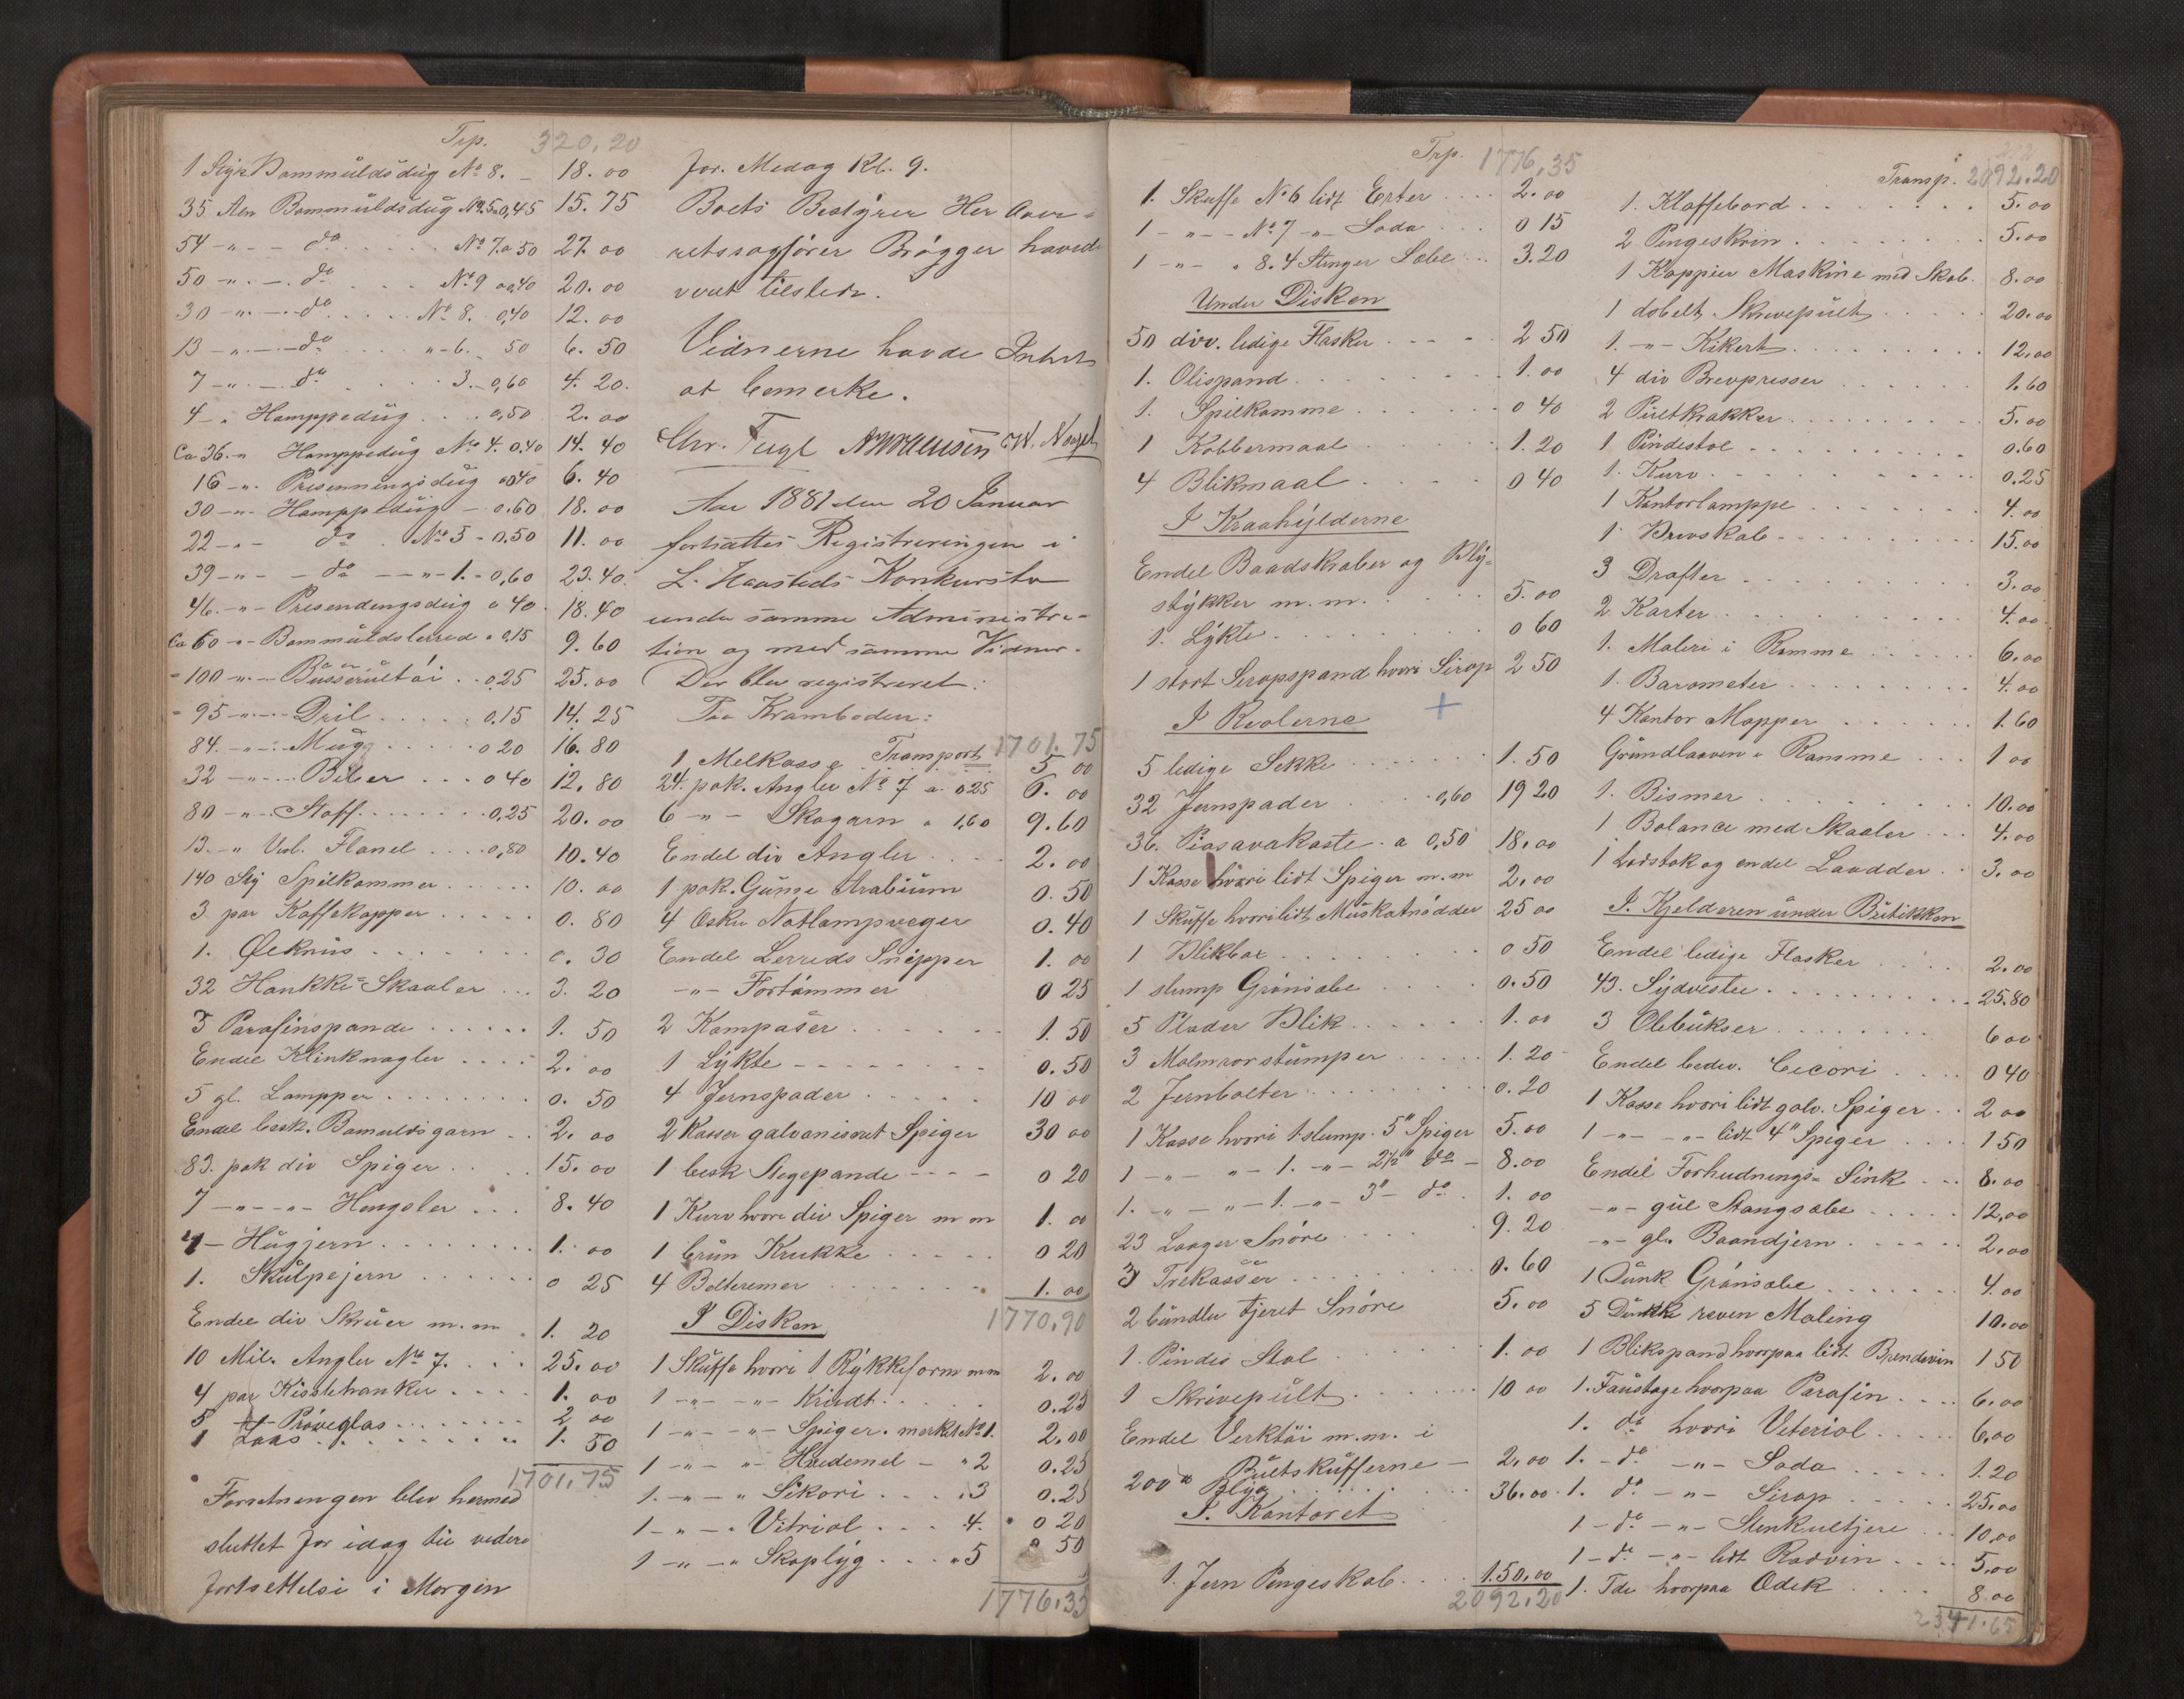 Trp. 320,20
1 Styk Bommuldsdug No 8. - 18.00
35 Alen Bommuldsdug No 5 a 0,45 15.75
54 -"- - do . . . . . No 7 a 50 27.00
50 -"- - do . . . No 9 a 0,40 20.00
30 -"- - do . . . . . No 8. 0,40 12.00
13 -"- - do . . . . "-6. 50 6.50
7 -"- - do . . . . . 3. - 0,60 4.20.
4 - " Hamppedug . . . 0,50 2.00
Ca 36 -" Hamppedug No 4. 0,40 14.40
16 -" Presenningsdug a 040 6.40
30 -"- Hamppedug - 0.60 18.00
22 -"- do . No 3 - 0,50 11.00
39 -"- - do - -"- 1. - 0,60 23.40.
46 -"- Presendengsdug a 40 18.40
Ca 60 -"- Bommuldslerred a 0,15 9.60
" 100 -"- Busserultöi . . 0,25 25.00
" 95 -"- Dril . . . . . 0,15 14.25
84. -"- Mugg . . . . . 0 20 16.80
32 -"- Biber . . . 0 40 12.80
80 -"- Stoff . . . . . . . 0,25 20.00
13. -" Uol. Flanel . . . 0,80 10.40
140 Sty Spilkommer . . . . . 10.00
3 par Kaffekopper . . . . . 0.80
1. Ølkrus . . . . . . . 0.30
32 Hankke-Skaaler . . . 3.20
3 Parafinspande . . . . . . 1.50
Endel Klinknagler . . . . 2.00
5 gl. Lampper . . . . . . . . 0.50
Endel besk. Bomuldsgarn . . 2.00
83. pak div Spiger . . . . 15.00
7 -"- -"- Hengsler . . . 8.40
4 - Hugjern . . . . . . . 1.00
1. Skulpejern . . . . . . 0 25
Endel div Skruer m. m . 1.20
10 Mil. Angler No 7. . . . 25.00
4 par Kistehanker . . . . 1.00
5 Pröveglas . . . . . . . 2.00
1 Laas . . . . . . . . . 1.50
1701,75
Forretningen blev hermed
sluttet for idag til videre
fortsettelse i Morgen
for. Medag Kl. 9.
Boets Bestyrer Her Over-
retssagförer Brögger havde
vært tilstede.
Vidnerne havde Intet
at bemerke.
Chr. Fugl
Aar 1881 den 20 Januar
fortsattes Registreringen i
L. Haasteds Konkursbo
under samme Administra-
tion og med samme Vidner.
Der blev registreret:
Paa Kramboden:
Transport 1701.75
1 Melkasse . . . . 5 00
24. pak. Angler No 7 a 0 25 6.00
6 -"- Skogarn a 1,60 9.60
Endel div Angler . . . . 2.00
1 pak. Gumi Arabium 0.50
4 Æsker Natlampveger 0.40
Endel Lerreds Snipper 1.00
-"- Fortömmer 0 25
2 Kompaser . . . . . . . 1.50
1 Lykte - - - - - - - - 0.50
4 Jernspader . . . . . 10 00
2 Kasser galvaniseret Spiger 30 00
1 besk Stegepande - - - - 0 20
1 Kurv hvori div Spiger m m 1.00
1 brun Krukke . . . . . 0 20
4 Belteremer . . . . . . . 1.00
1770,90
I Disken
1 Skuffe hvori 1 Rykkeform m m 2.00
1 -"- -"- Kridt . . . . . 0.25
1 -"- -"- Spiger. merket No 1. 2.00
1 -"- -"- Hvedemel - " 2 0.25
1. -"- " Sikori . . . . . 3 0.25
1 -"- " Vitriol . . . 4. 0 20
1 -"- -" Skoplyg . . . " 5 " 50
1776,35
Trp. 1776,35
1. Skuffe No 6 lidt Erter . . . . 2.00
1 -"- - No 7 -"- Soda . . . 0 15
1 -"- " 8. 4 Stenger Sæbe . . . 3.20
Under Disken
50 div. ledige Flasker . . - - - 2 50
1. Olispand . . . . . . . . . 1.00
1. Spilkomme . . . . . . . 0 40
1 Kobbermaal . . . . . . 1.20
4 Blikmaal . . . . . . 0 40
I Kraahylderne
Endel Baadskraber og Bly-
stykker m. m. . . . . . 5.00
1. Lykte . . . . . . . . . 0 60
1 stort Siropspand hvori Sirop 2 50
I Reolerne
5 ledige Sekke . . . . . . . 1.50
32 Jernspader . . . . 0,60 19 20
36. Piasavakoste . a 0,50 18.00
1 Kasse hvori lidt Spiger m. m 2.00
1 Skuffe hvori lidt Muskatnödder 25 00
1 Blikbox . . . . . . . . 0 50
1 slump Grönsæbe . . . . 0.50
5 Plader Blik . . . . . . 1.00
3 Malmrorstumper . . . . . 1.20
2 Jernbolter . . . . . . . . . 0.20
1 Kasse hvori 1 slump. 5" Spiger 5.00
1 -"- -"- 1. -"- 2½" do - 8.00
1. -"- -"- 1. -"- 3" - do . 1.00
23 Laager Snöre . . . . 9.20
3 Trekasser . . . . . . . . 0.60
2 bundter tjeret Snöre 5.00
1. Pindes Stol . . . . . . . 1.00
1 Skrivepult . . . . . . . 10 00
Endel Verktöi m. m. i
Pultskufferne - 2.00
200 " Blyg . . . . . . . . 36.00
I. Kontoret
1. Jern Pengeskab . . . . 150.00
2092,20
Transp. 2092.20
1. Klaffebord . . . . . . . 5.00
2 Pengeskrin . . . . . . . 5.00
1 Koppier Maskine med Skab. 8.00
1 dobelt Skrivepult . . . . . 20.00
1. -"- Kikert . . . . . . . . . 12.00
4 div Brevpresser . . . . . . 1.60
2 Pultkrakker . . . . . . . 5.00
1 Pindestol . . . . . . . . . . 0.60
1. Kurv . . . . . . . . . . 0.25
1 Kontorlamppe . . . . . . . 4.00
1 Brevskab . . . . . . . . . 15.00
3 Drafter . . . . . . . . . . 3.00
2 Karter . . . . . . . . . . 4.00
1. Maleri i Ramme . . . . . . 6.00
1. Barometer . . . . . . . . . 4.00
4 Kontor Mapper . . . . . . 1.60
Grundloven i Ramme . . . 1 00
1. Bismer . . . . . . . . . . 10.00
1 Balance med Skaaler . . . 4.00
1 Lodstok og endel Laadder . . 3.00
I. Kjelderen under Butikken
Endel ledige Flasker . . . . 2.00
43. Sydvester . . . . . . . . . . 25.80
3 Oliebukser . . . . . . . . 6 00
Endel bedev. Cecori . . . . 0 40
1 Kasse hvori lidt galv. Spiger . . 2 00
1 -"- -"- lidt 4" Spiger . . . . 1 50
Endel Forhudnings-Sink . . . 8.00
-"- gul Stangsæbe . . . . . 12,00
-"- gl. Baandjern . . . . . 2.00
1 Dunk Grönsæbe . . . . . . 4.00
5 Dunke reven Maling 10.00
1 Blikspand hvorpaa lidt Brendevin 1 50
1. Faustage hvorpaa Parafin . . . . 6.00
1. do hvori Veteriol . . . . . 6,00
1. - do -"- Soda . . . . . 1.20
1. do -"- Sirop . . . . . 25.00
1 - do -"- Stenkultjere . . . 10,00
1 - do -"- lidt Rødvin . . . . 5,00
1. Tde hvorpaa Edik . . . . 8.00
2341.65